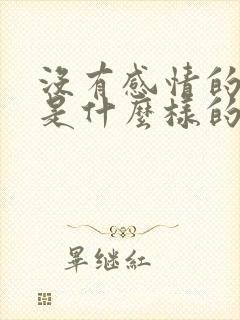 沒有感情的
是什麼樣的
畢继紅